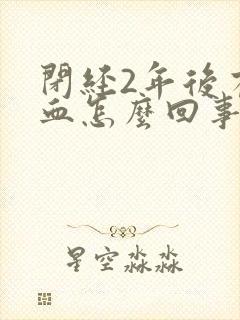 閉經2年後
血怎麼回事
星空淼淼